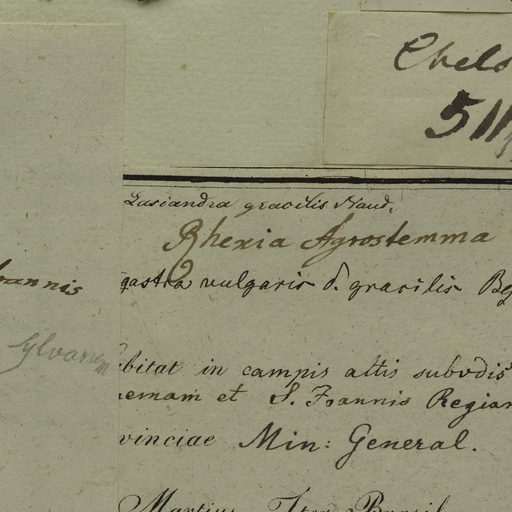 Lasiandra gracilis Naud.
Rhexia Agrostemma
gastra vulgaris δ. gracilis
bitat in campis altis subvdis
et S. Joannis Regian
vinciae Min: General.
Martius Iter Brasil
annis
Sylvan
Chels
511